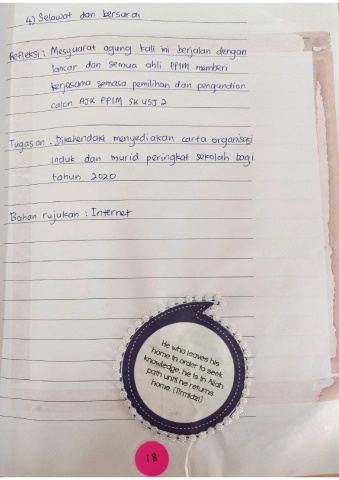 4) Selawat dan bersurai
Refleksi : Mesyuarat agung kali ini berjalan dengan
lancar dan semua ahli PPIM memberi
kerjasama semasa pemilihan dan pengundian
calon AJK PPIM SK USJ 2
Tugasan : Dikehendaki menyediakan carta organisasi
induk dan murid peringkat sekolah bagi
tahun 2020
Bahan rujukan : Internet
He who leaves his
home in order to seek
knowledge, he is in Allah
path until he returns
home. (Tirmidzi)
18